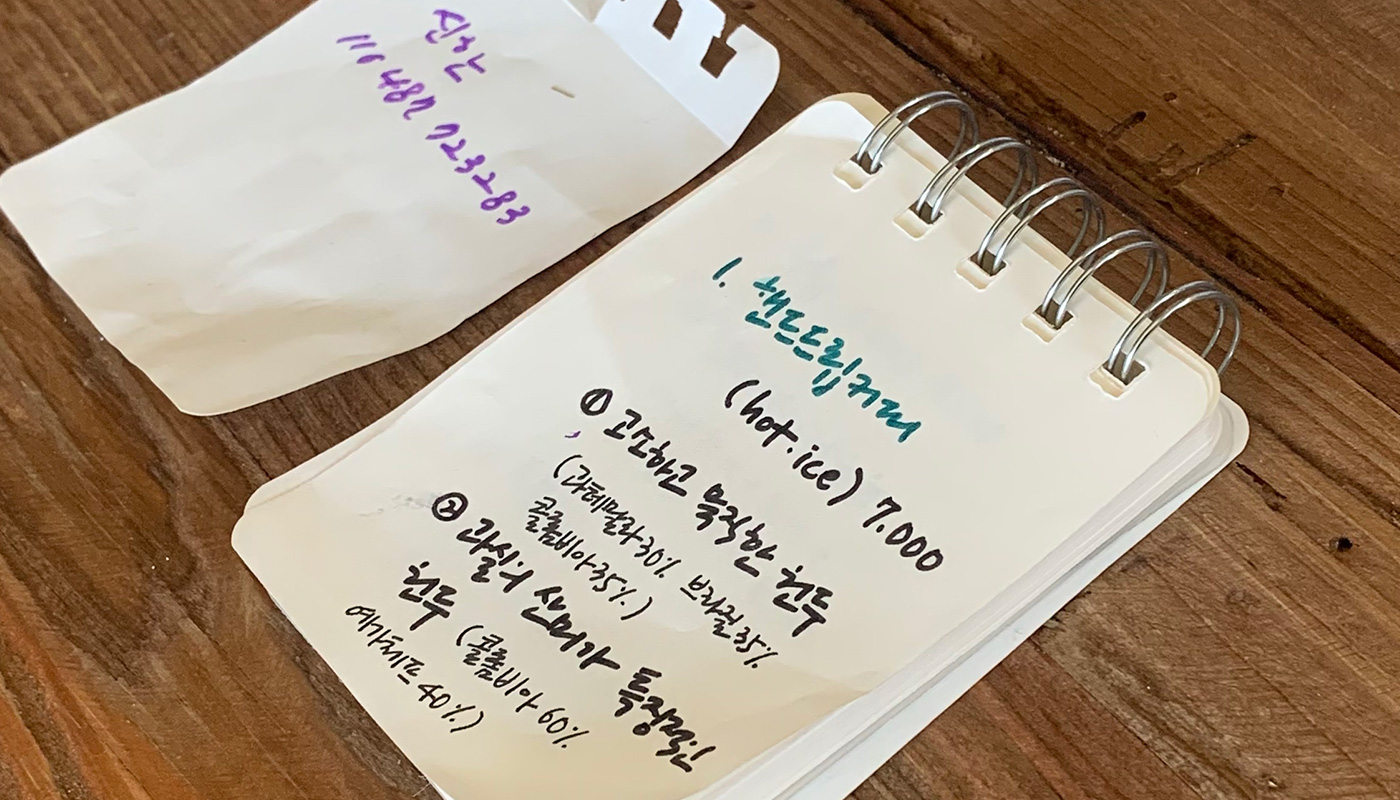 신한
110 487 723283
1. 핸드드립커피
(hot.ice) 7.000
① 고소하고 묵직한 원두
(과테말라30% 브라질35%
콜롬비아35%)
② 과실의 산미가 특징인
원두 (콜롬비아 60%
에티오피아 40%)